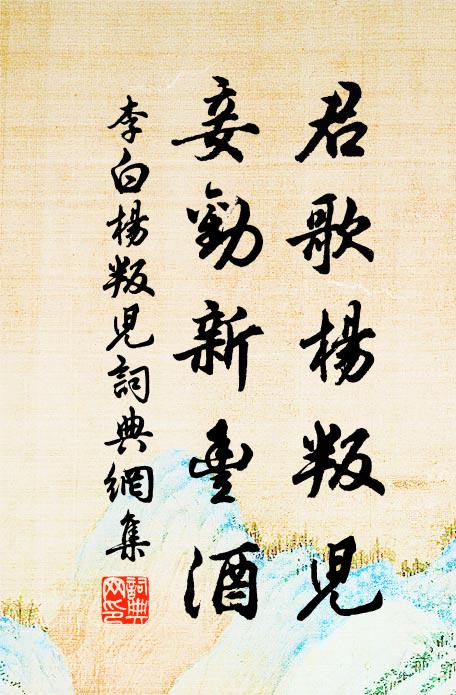 君歌楊叛兒
妾勸新豐酒
李白楊叛兒詞典網集
詞典網印